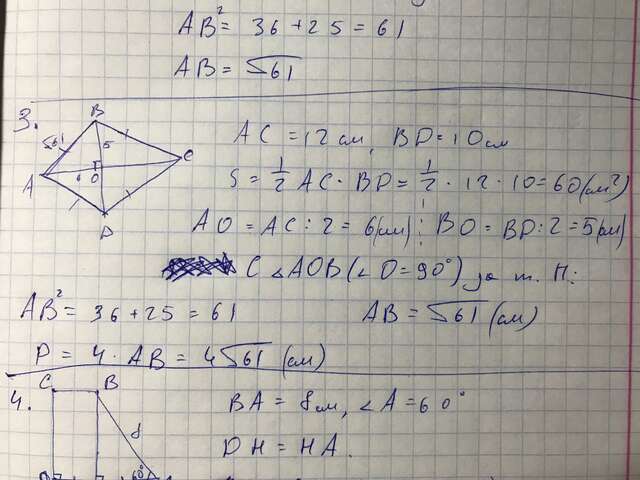 AB² = 36 + 25 = 61
AB = √61
3.
B
√61
5
C
A
6
O
D
AC = 12 см, BD = 10 см
S = 1/2 AC · BD = 1/2 · 12 · 10 = 60 (см²)
AO = AC : 2 = 6 (см) ; BO = BD : 2 = 5 (см)
С ∠AOB (∠O = 90°) за т. П:
AB² = 36 + 25 = 61
AB = √61 (см)
P = 4 · AB = 4√61 (см)
4.
C
B
8
60°
BA = 8 см, ∠A = 60°
DH = HA.